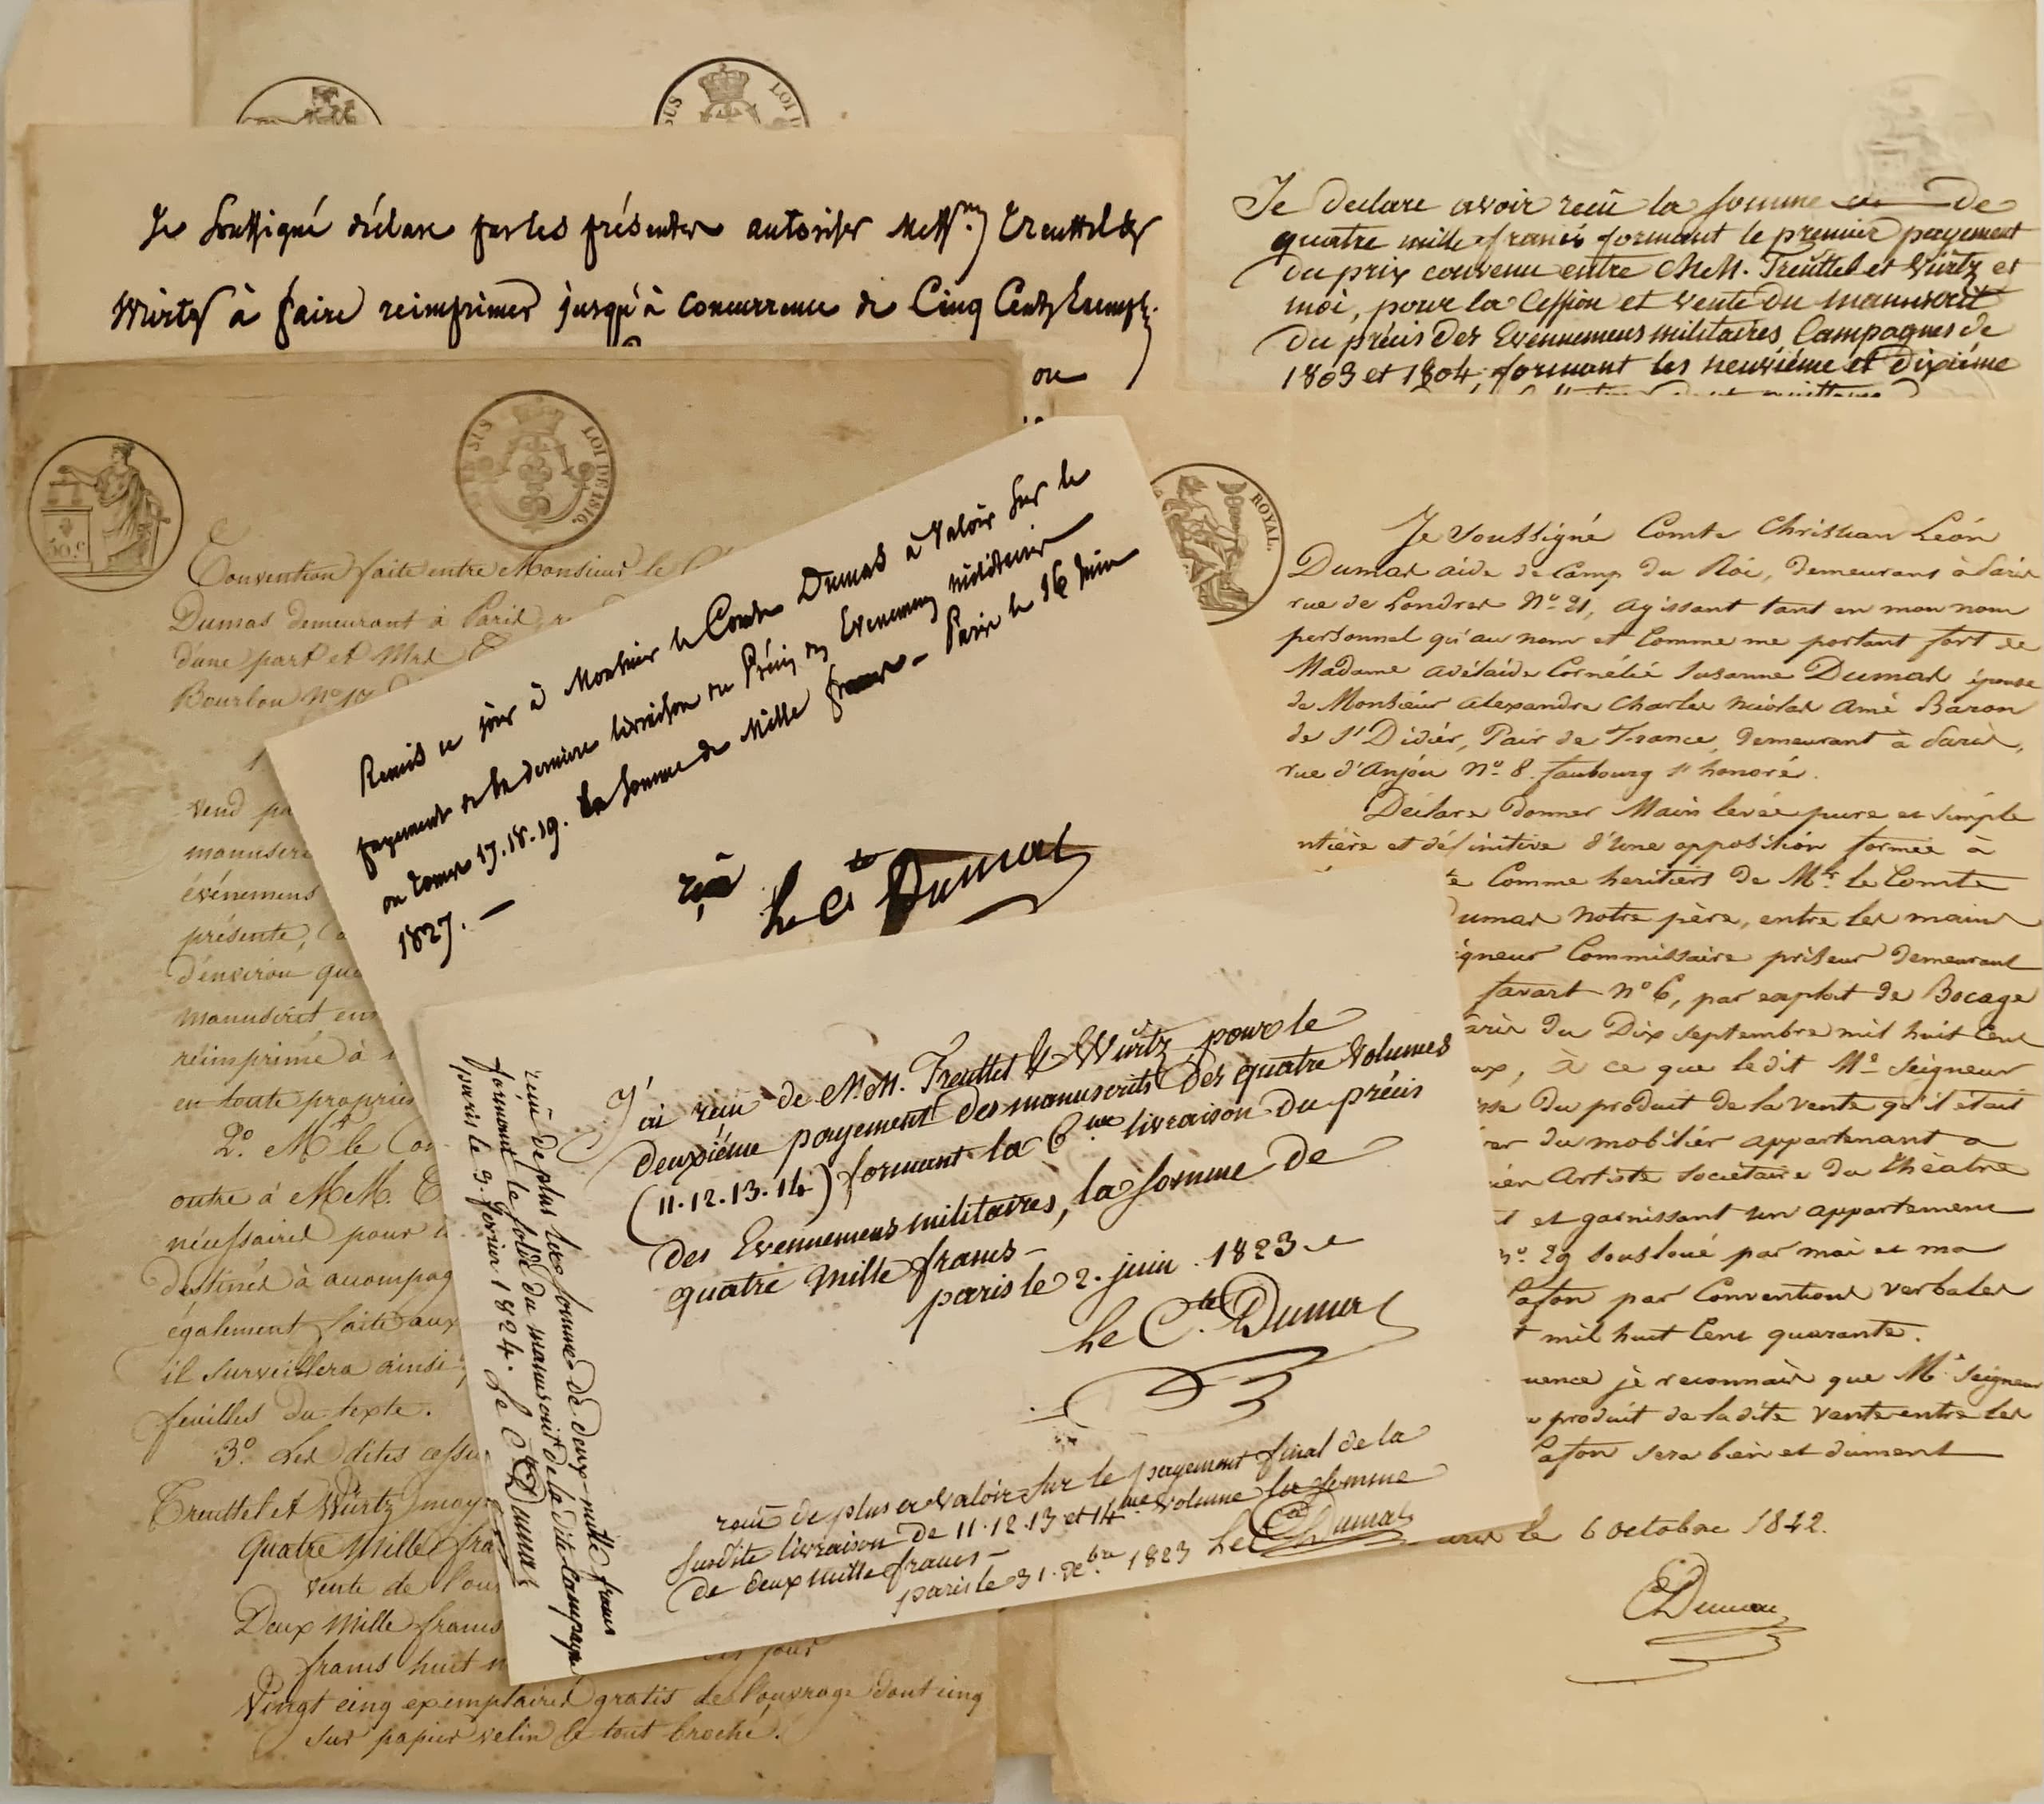 SUS
LOI D
Je Soussigné déclare par les présentes autoriser Mess.rs Treuttel &
Würtz à faire reimprimer jusqu'à concurrence de Cinq Cents Exempl.
ou
Je declare avoir reçû la somme de
quatre mille francs formant le premier payement
du prix convenu entre MM. Treuttel et Würtz et
moi, pour la Cession et vente du manuscrit
du précis des Evennemens militaires, Campagnes de
1803 et 1804, formant les neuvième et dixième
SUS
LOI DE 1816.
50.c
Convention faite entre Monsieur le
Dumas demeurant à Paris, r
d'une part et Mrs T
Bourbon No 17
1
vend pa
manuscri
événemens
présente,
d'environ qua
manuscrit en
réimprimé à
en toute proprié
2o. Mr le Co
outre à MM. T
nécessaires pour
destinés à accompag
également faite aux
il surveillera ainsi
feuilles du texte.
3o. Les dites cessi
Treuttel et Würtz moy
Quatre Mille fra
vente de l'ou
Deux Mille francs
francs huit m
jour
Vingt cinq exemplaires gratis de l'ouvrage dont cinq
sur papier velin le tout broché.
Remis ce jour à Monsieur le Comte Dumas à Valoir Sur le
payement de la dernière livraison du Précis des Evenemens militaires
ou tomes 17.18.19. La Somme de Mille francs – Paris le 16 Juin
1827. –
reçu
Le Cte Dumas
J'ai reçu de MM. Treuttel & Würtz pour le
deuxiéme payement des manuscrits des quatre Volumes
(11.12.13.14) formant la 6me livraison du précis
des Evennemens militaires, la somme de
quatre mille francs –
paris le 2. juin 1823
Le Cte Dumas
reçû de plus a valoir sur le payement final de la
susdite livraison de 11.12.13 et 14me volume la somme
de deux mille francs –
paris le 31. Xbre 1823 Le Cte Dumas
reçu de plus la somme de deux mille francs
formant le solde du manuscrit de la dite campagne
paris le 9. fevrier 1824. Le Cte Dumas
ROYAL.
Je Soussigné Comte Christian Léon
Dumas aide de Camp du Roi, demeurant à Paris
rue de Londres No. 21, agissant tant en mon nom
personnel qu'au nom et Comme me portant fort de
Madame Adélaïde Cornélie Susanne Dumas épouse
de Monsieur Alexandre Charles Nicolas Amé Baron
de St Didier, Pair de France, demeurant à Paris,
rue d'Anjou No. 8. faubourg St honoré.
Déclare donner Main levée pure et simple
ntière et définitive d'une opposition formée à
te Comme heritiers de Mr. le Comte
Dumas notre père, entre les mains
igneur Commissaire priseur demeurant
favart No 6, par exploit de Bocage
aris du Dix septembre mil huit Cent
ux, à ce que ledit Me Seigneur
sse du produit de la vente qu'il était
er du mobilier appartenant a
ien Artiste Societaire du théatre
t et garnissant un appartement
No. 29 sous loué par moi et ma
afon par Conventions verbales
t mil huit Cent quarante.
uence je reconnais que Me. Seigneur
produit de la dite vente entre les
Lafon sera bien et dument
aris le 6 octobre 1842.
CDumas